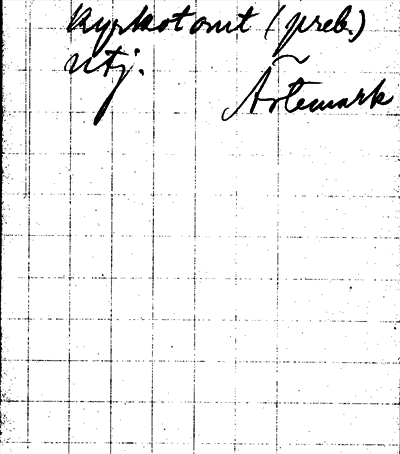 Kyrkotomt (preb.)
utj.
Ärtemark